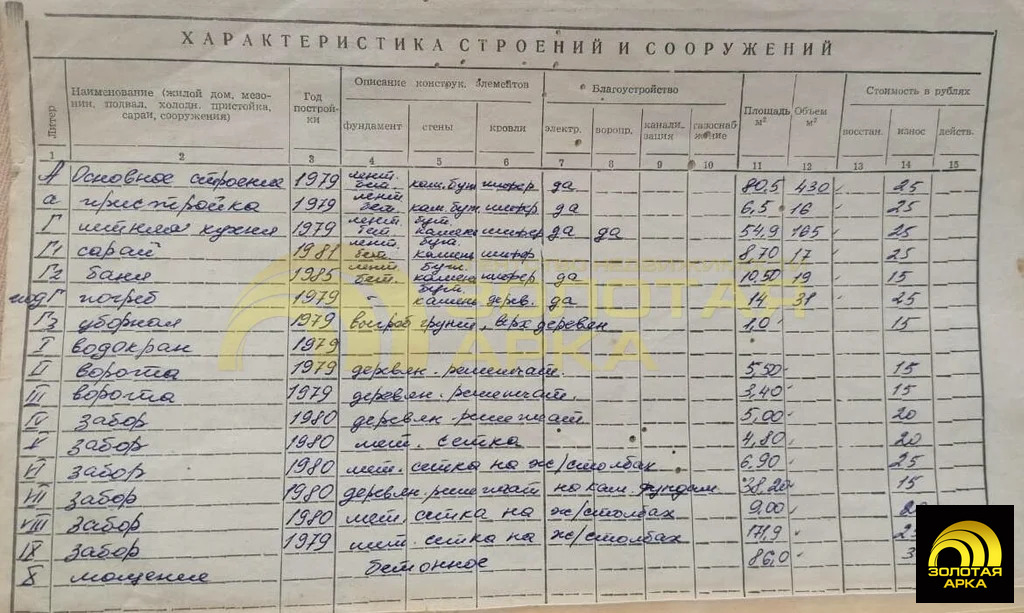 ХАРАКТЕРИСТИКА СТРОЕНИЙ И СООРУЖЕНИЙ
Литер Наименование (жилой дом, мезонин, подвал, холодн. пристойка, сараи, сооружения) Год постройки Описание конструк. элементов Благоустройство Площадь м² Объем м² Стоимость в рублях
фундамент стены кровли электр. вопр. канализация газоснабжение восстан. износ действ.
1 2 3 4 5 6 7 8 9 10 11 12 13 14 15
А Основное строение 1979 лент. бет. кам.бут шифер да 80,5 430 25
а пристройка 1979 лент. бет. кам.бут. шифер да 6,5 16 25
Г летняя кухня 1979 лент. бет. бут. камень шифер да да 54,9 165 25
Г1 сарай 1981 лент. бет. бут. камень шифер 8,70 17 25
Г2 баня 1985 лент. бет. бут. камень шифер да 10,50 19 15
под Г погреб 1979 -"- бут. камень дерев. да 14 31 25
Г3 уборная 1979 выгреб грунт., верх деревян 1,0 15
I водокран 1979
II ворота 1979 деревян. решетчат. 5,50 15
III ворота 1979 деревян. решетчат. 3,40 15
IV забор 1980 деревян. решетчат 5,00 20
V забор 1980 мет. сетка 4,80 20
VI забор 1980 мет. сетка на ж/столбах 6.90 25
VII забор 1980 деревян. решетчат на кам. фундам. 38,20 15
VIII забор 1980 мет. сетка на ж/столбах 9,00
IX забор 1979 мет. сетка на ж/столбах 171,9
X мощение бетонное 86,0
АГЕНТСТВО НЕДВИЖИМОСТИ
ЗОЛОТАЯ
АРКА
ЗОЛОТАЯ
АРКА